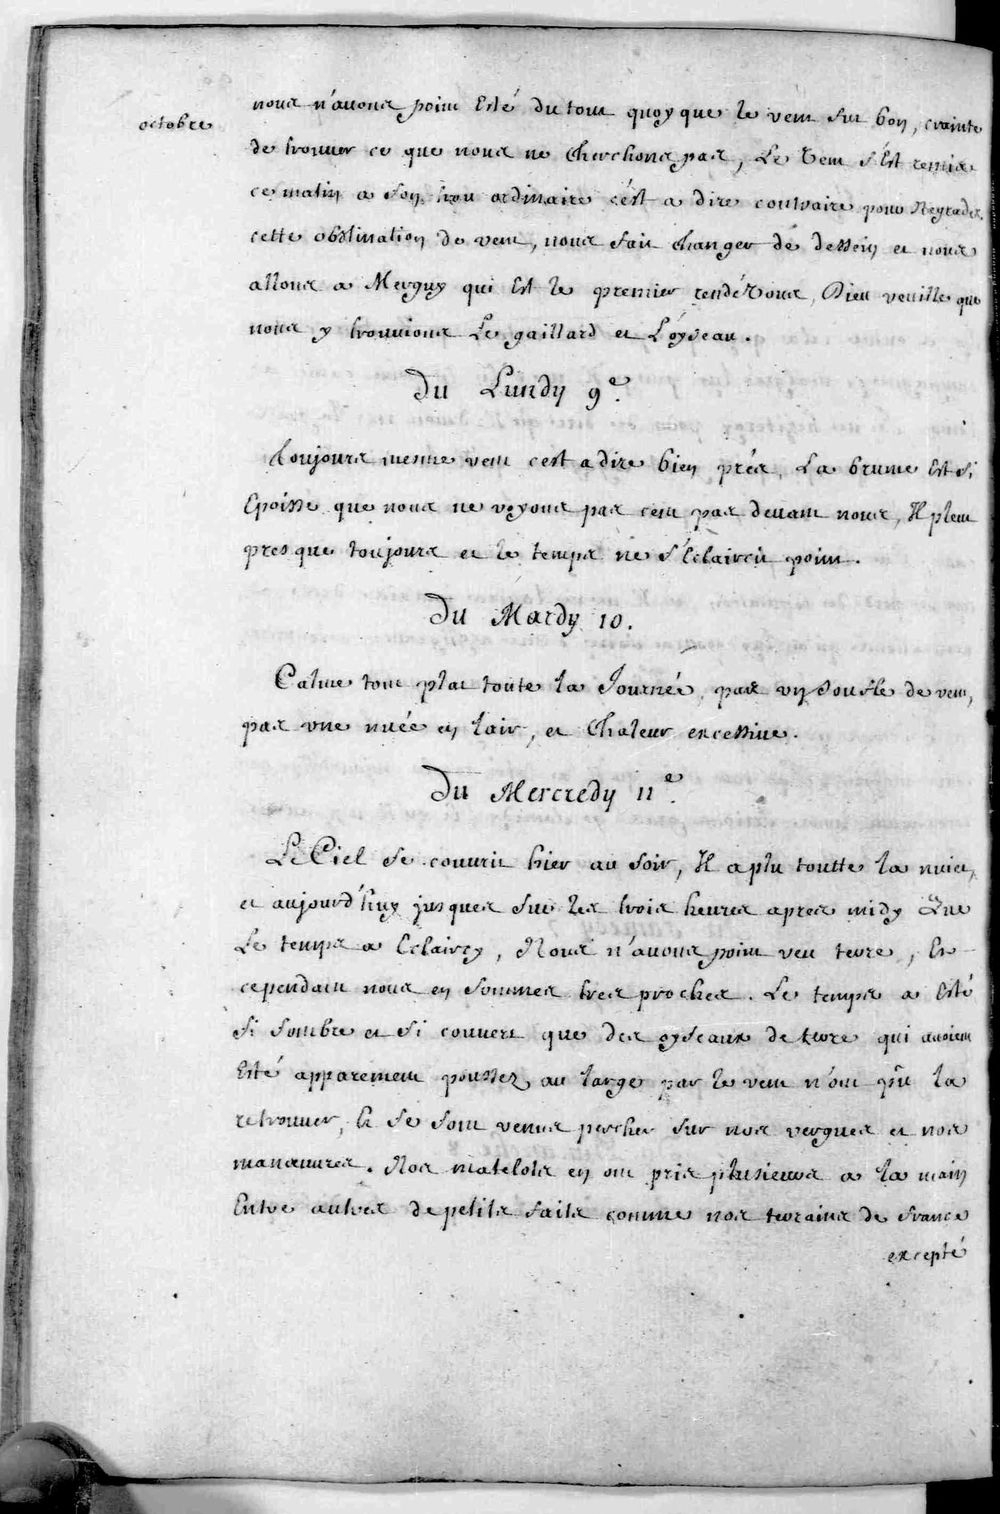 octobre
nous n'auons point Esté du tout quoy que le vent fut bon, crainte
de trouuer ce que nous ne Cherchons pas, Le Vent s'Est remis
ce matin a son trou ordinaire c'est a dire contraire pour Negrades.
cette obstination de vent, nous fait changer de dessein et nous
allons a Merguy qui Est le premier rendéVous, Dieu veuille que
nous y trouuions Le gaillard et L'oyseau.
Du Lundy 9e.
Toujours mesme vent cest a dire bien prés, La brume Est si
Epoisse que nous ne voyons pas cent pas deuant nous, Il pleut
presque toujours et le temps ne s'Eclaircit point.
Du Mardy 10.
Calme tout plat toute la Journée, pas vn soufle de vent,
pas vne nuée en lair, et Chaleur excessiue.
Du Mercredy 11e.
Le Ciel se couurit hier au soir, Il a plu toutte la nuict,
et aujourd'huy jusques sur les trois heures apres midy Que
Le temps a Eclaircy, Nous n'auons point veu terre, Et
cependant nous en sommes tres proches. Le temps a Esté
si sombre et si couuert que des oyseaux de terre qui auoient
Esté apparement poussez au large par le vent n'ont pû la
retrouuer, & se sont venus percher sur nos vergues et nos
manœuures. Nos matelots en ont pris plusieurs a la main
Entre autres de petits faits comme nos terains de france
excepté